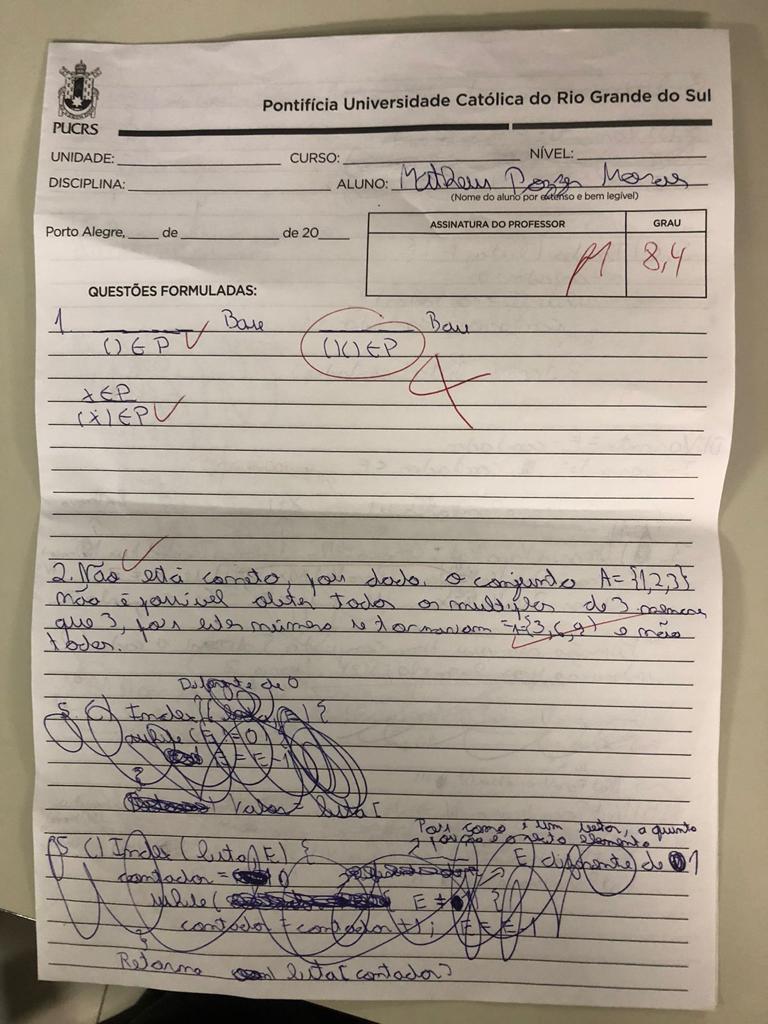 PUCRS
Pontifícia Universidade Católica do Rio Grande do Sul
UNIDADE: CURSO: NÍVEL:
DISCIPLINA: ALUNO: Matheus Pozza Moraes
(Nome do aluno por extenso e bem legível)
Porto Alegre, de de 20
ASSINATURA DO PROFESSOR GRAU
8,4
QUESTÕES FORMULADAS:
1. Base Base
() ∈ P ()() ∈ P
x ∈ P
(x) ∈ P
2. Não está correto, pois dado o conjunto A = {1,2,3}
não é possível obter todos os multiplos de 3 menores
que 3, pois estes números retornariam = {3,6,9} e não
todos.
Diferente de 0
5 c) Index (lista, E) {
while (E != 0) {
E = E - 1
}
Valor = lista [
Pois como é um vetor, a quinta
posição é o sexto elemento
5 c) Index (lista, E) {
E diferente de 1
contador = 0
while ( E ≠ 1) {
contador = contador + 1; E = E - 1
}
Retorna lista [contador]